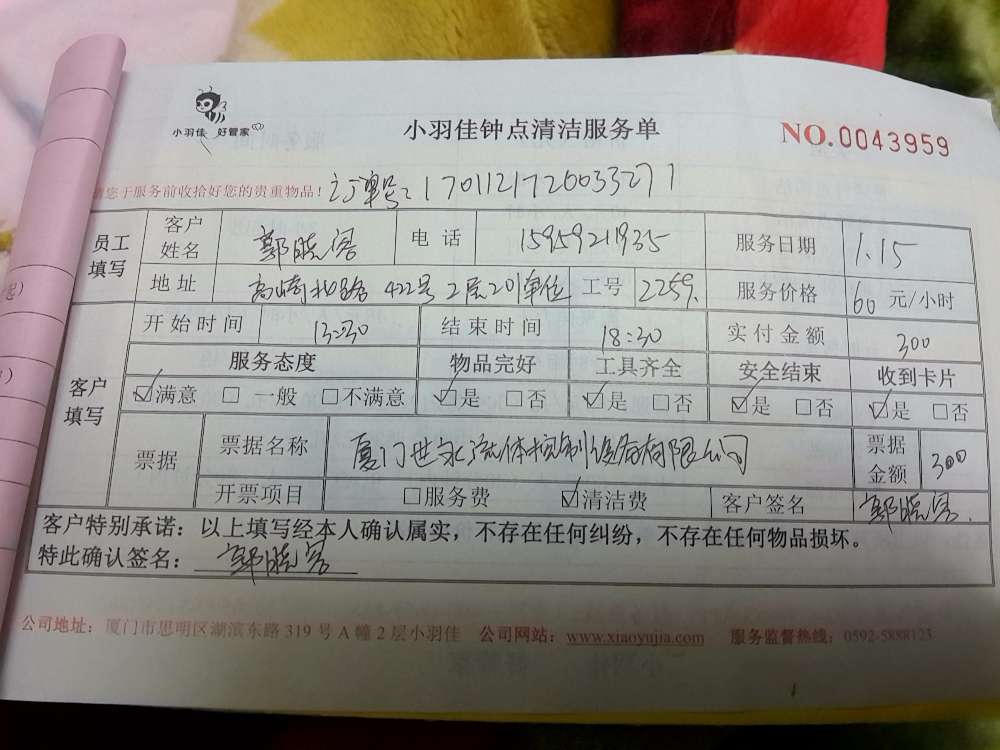 小羽佳 好管家
小羽佳钟点清洁服务单
NO.0043959
请您于服务前收拾好您的贵重物品！订单号：17011217260033271
员工填写 客户姓名 郭晓 电话 15959211935 服务日期 1.15
地址 高崎北路 422号 2层201单位 工号 2259. 服务价格 60 元/小时
客户填写 开始时间 13:30 结束时间 18:30 实付金额 300
服务态度 物品完好 工具齐全 安全结束 收到卡片
☑满意 □一般 □不满意 ☑是 □否 ☑是 □否 ☑是 □否 ☑是 □否
票据 票据名称 厦门世永流体控制设备有限公司 票据金额 300
开票项目 □服务费 ☑清洁费 客户签名 郭晓
客户特别承诺：以上填写经本人确认属实，不存在任何纠纷，不存在任何物品损坏。
特此确认签名：郭晓
公司地址：厦门市思明区湖滨东路 319 号 A 幢 2 层小羽佳 公司网站：www.xiaoyujia.com 服务监督热线：0592-5888123